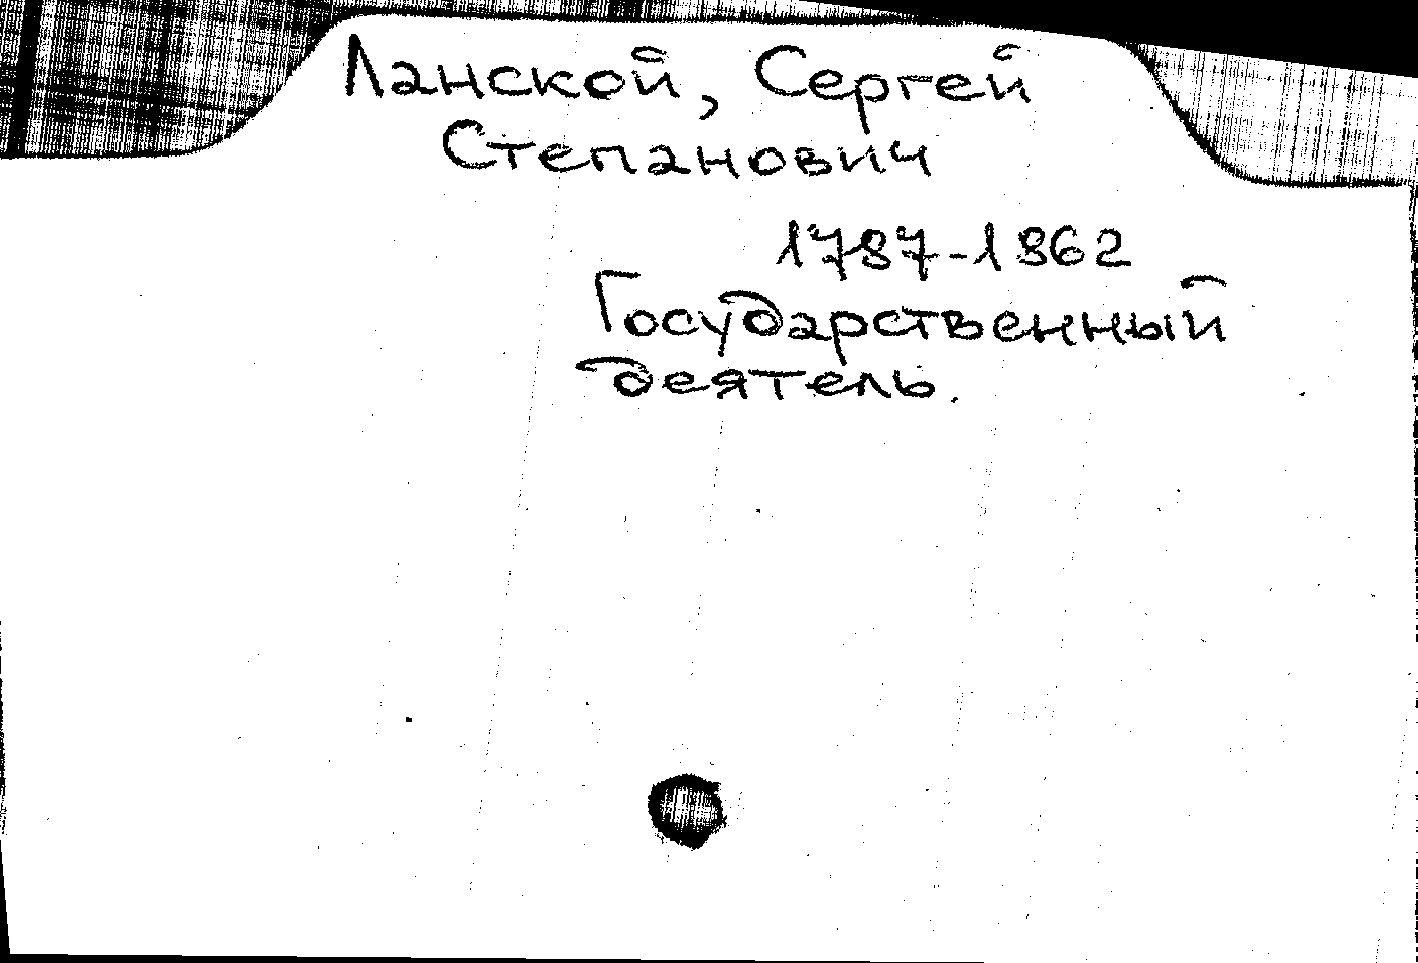 Ланской, Сергей
Степанович
1787-1862
Государственный
деятель.